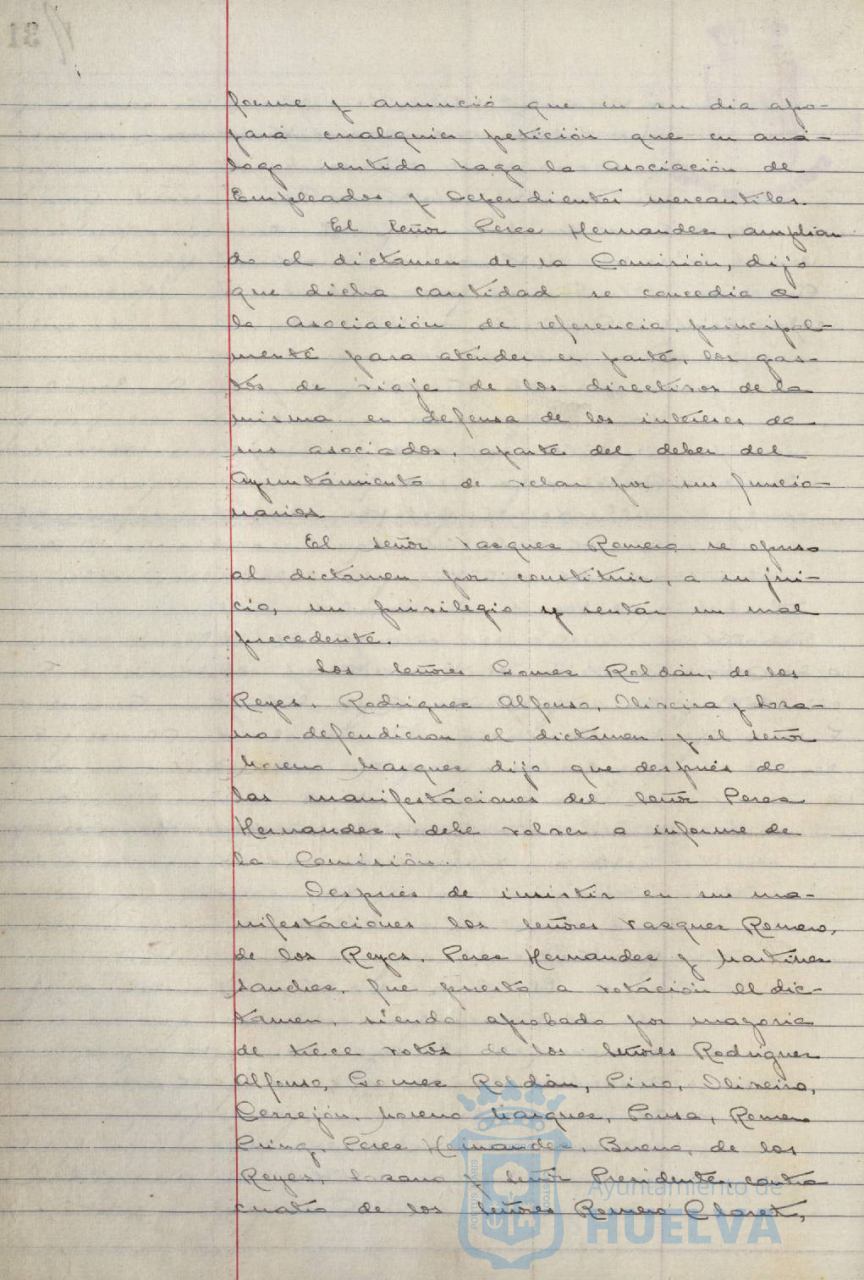 forme y anunció que en su dia apo-
yará cualquier petición que en aná-
logo sentido haga la Asociación de
Empleados y Dependientes mercantiles.
El Señor Perez Hernandez, amplian
do el dictámen de la Comisión, dijo
que dicha cantidad se concedia a
la Asociación de referencia principal-
mente para atender en parte, los gas-
tos de viaje de los directivos de la
misma en defensa de los intéreses de
sus asociados, aparte del deber del
Ayuntamiento de velar por sus funcio-
narios.
El señor Vazquez Romero se opuso
al dictámen por constituir, a su jui-
cio, un privilegio y sentar un mal
precedente.
Los Señores Gomez Roldán, de los
Reyes, Rodriguez Alfonso, Oliveira y Loza-
no defendieron el dictámen y el señor
Moreno Marquez dijo que después de
las manifestaciones del Señor Perez
Hernandez, debe volver a informe de
la Comisión.
Después de insistir en sus ma-
nifestaciones los Señores Vazquez Romero,
de los Reyes, Perez Hernandez y Martinez
Sanchez, fue puesto a votación el dic-
támen, siendo aprobado por mayoria
de trece votos de los Señores Rodriguez
Alfonso, Gomez Roldán, Pino, Oliveira,
Cerrejón, Moreno Marquez, Ponsa, Romero
Perez Hernandez, Bueno, de los
Reyes, Lozano y Señor Presidente, contra
cuatro de los Señores Romero Claret,
Ayuntamiento de
HUELVA
31